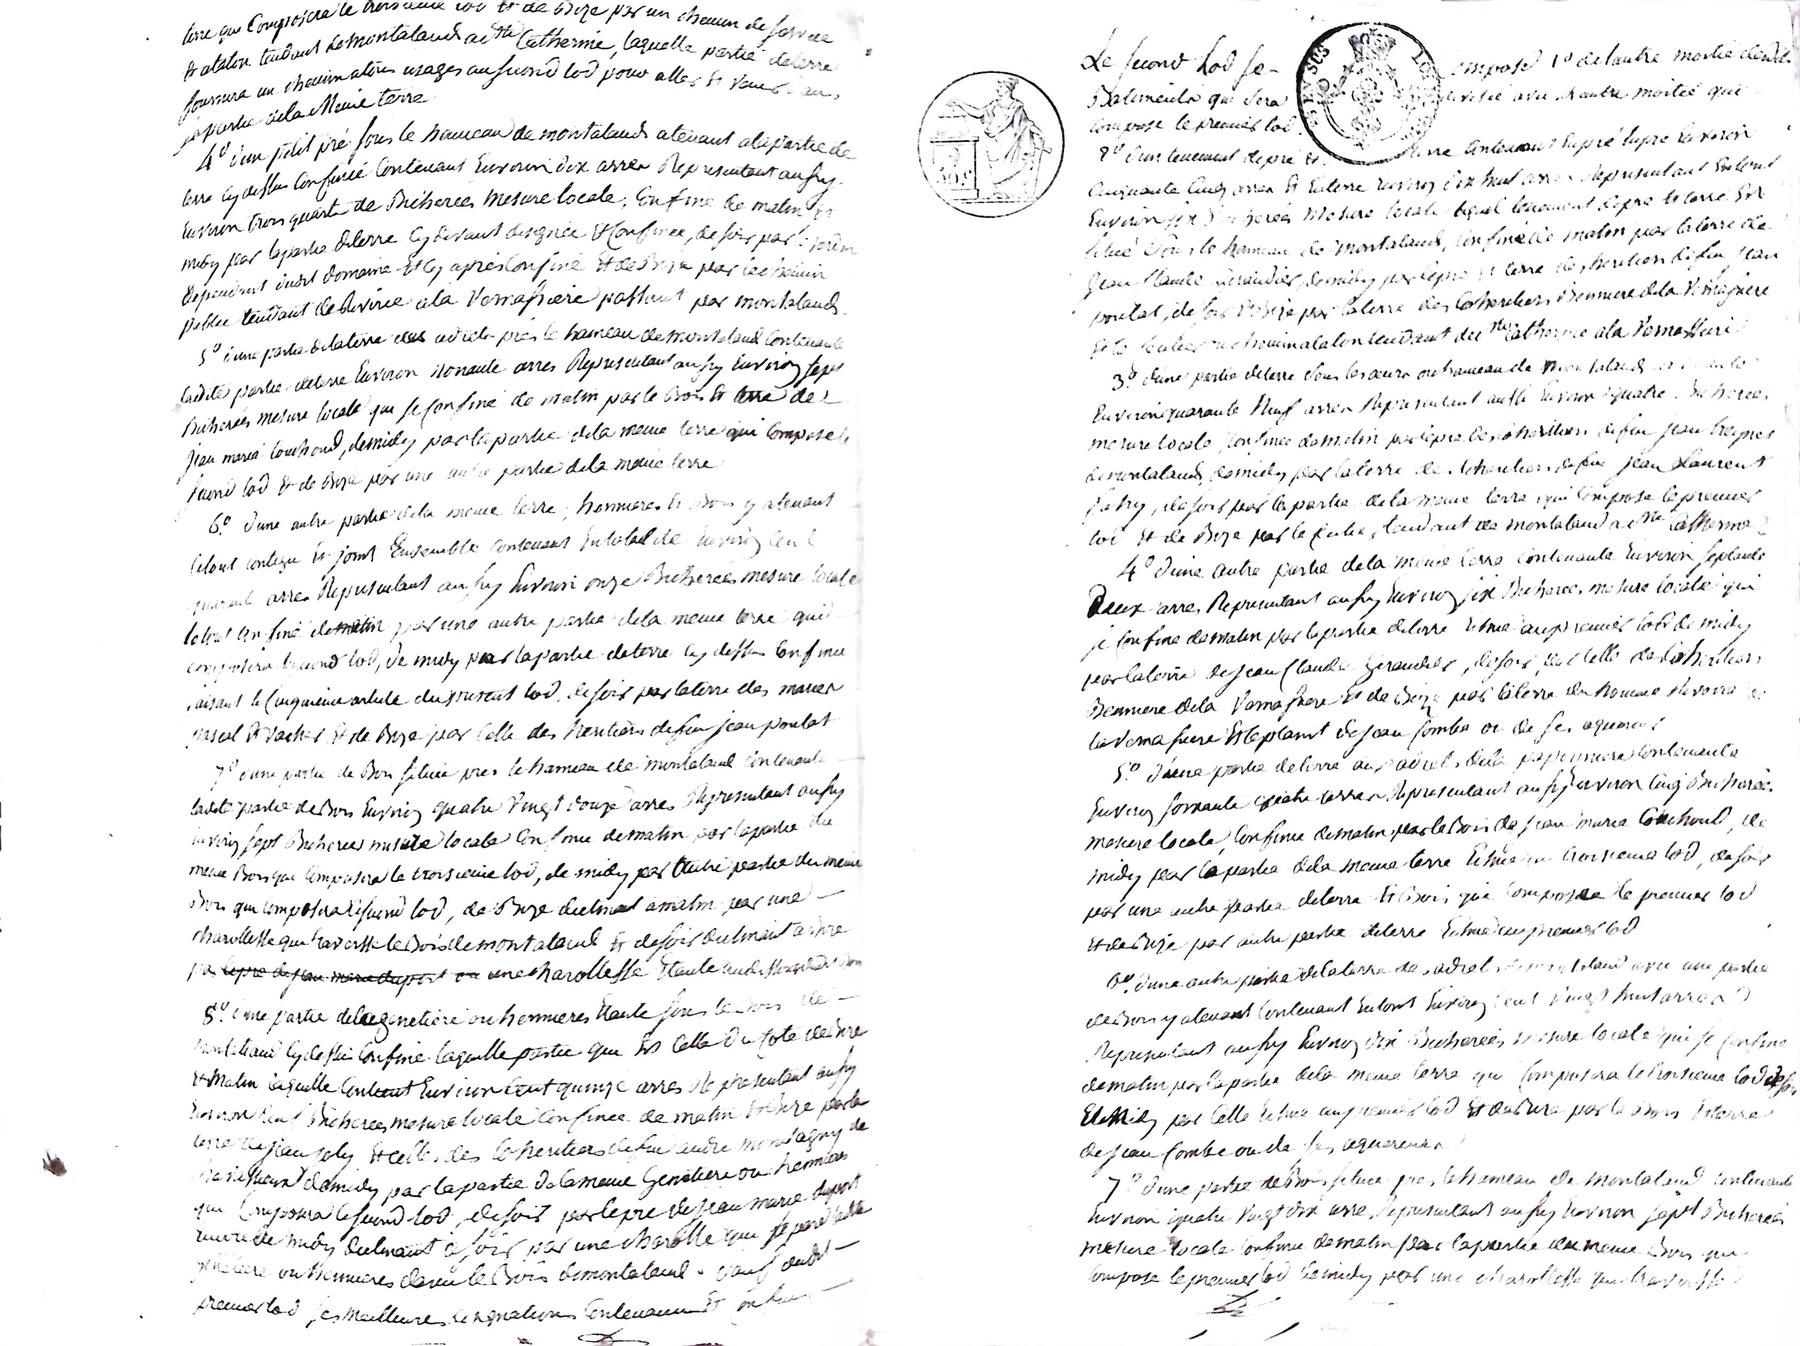 terre qui Composera le troisieme lod Et de Bize par un chemin de service
Et atalon tendant de montalaud a Ste Catherine, laquelle partie de terre
fournira un chemin atous usages au second lod pour aller Et venir dans
sa partie de la Meme terre
4o d'un petit pré sous le hameau de montalaud atenant ala partie de
terre cy dessus Confinée Contenant Environ dix arres Representant aussy
Environ trois quarts de Bicherées mesure locale, Confiné de matin Et
midy par la partie de terre cy devant designée Et Confinée, de soir par
dependant dudit domaine Et cy après Confiné Et de Bize par le chemin
public tendant de Riverie a la Vernassiere passant par montalaud
5o d'une partie de la terre des adrets près le hameau de montalaud Contenante
ladite partie de terre Environ nonante arres Representant aussy Environ sept
Bicherées mesure locale qui se Confine de matin par le Bois Et terre de
Jean marie Couchoud, de midy par la partie de la meme terre qui Compose le
second lod Et de Bize par une autre partie de la meme terre
6o d'une autre partie de la meme terre, hermieres Et Bois y atenant
le tout contigu Et joint Ensemble Contenant En total de Environ Cent
quarante arres Representant aussy Environ onze Bicherées mesure locale
le tout Confiné de matin par une autre partie de la meme terre qui
composera le second lod, de midy par la partie de terre cy dessus Confinée
faisant le Cinquieme article du present lod, de soir par la terre des maries
pascal Et vacher Et de Bize par Celle des heritiers de feu jean poulat
7o d'une partie de Bois située pres le hameau de montalaud Contenante
ladite partie de Bois Environ quatre Vingt douze arres Representant aussy
Environ sept Bicherées mesure locale Confinée de matin par la partie du
meme Bois qui Composera le troisieme lod, de midy par l'autre partie du meme
Bois qui composera le second lod, de Bize declinant a matin par une
charollesse qui traverse le Bois de montalaud Et de soir declinant a Bize
par le pre de jean marie duport ou une charollesse Etante au dessous dudit Bois
8o d'une partie de la genetiere ou hermieres Etante sous le Bois de
montalaud cy dessus Confiné laquelle partie qui Est Celle du Coté de Bize
Et Matin laquelle Contient Environ Cent quinze arres Representant aussy
Environ neuf Bicherées mesure locale Confinée de matin Et Bize par la
terre de jean joly Et celle des Coheritiers de feu andré montagny de
de midy par la partie de la meme Genetiere ou hermieres
qui Composera le second lod, de soir par le pre de jean marie duport
Encore de midy declinant a soir par une charolle qui separe ladite
genetiere ou hermieres davec le Bois de montalaud. sauf audit
premier lod ses meilleures designations Contenances Et Confins
Le second Lod se Composé 1o de lautre moitié desdits
Batiments qui sera divisée avec lautre moitié qui
compose le premier lod
2o d'un tenement de pré Et terre Contenant le pré Environ
Cinquante Cinq arres Et la terre Environ dix huit arres Representant Entout
Environ six Bicherées mesure locale lequel tenement de pre Et terre Est
situé sous le hameau de montalaud, Confiné de matin par la terre de
Jean Claude Giraudier, de midy par le pre Et terre des heritiers de feu Jean
poulat, de soir Et Bize par la terre des Coheritiers Benniere de la Vernassiere
Et le sentier ou chemin a talon tendant de Ste Catherine a la Vernassiere
3o d'une partie de terre sous les ou hameau de montalaud Contenante
Environ quarante Neuf arres Representant aussi Environ quatre Bicherées
mesure locale, Confinée de matin par le pre des Coheritiers de feu jean
de montalaud, de midy par la terre des Coheritiers de feu jean Laurent
de soir par la partie de la meme terre qui Compose le premier
lod Et de Bize par le sentier, tendant de montalaud a Ste Catherine
4o d'une autre partie de la meme terre contenante Environ septante
Deux arres Representant aussy Environ six Bicherées mesure locale qui
se Confine de matin par la partie de terre Echue au premier lod de midy
par la terre de jean Claude Giraudier, de soir par Celle des Coheritiers
Benniere de la Vernassiere Et de Bize par la terre du nommé
la Vernassiere Et le plant de jean Combe ou de ses aquereurs
5o d'une partie de terre aux adrets de la Contenante
Environ soixante quatre arres Representant aussy Environ Cinq Bicherées
mesure locale, Confinée de matin par le Bois de jean marie Couchoud, de
midy par la partie de la meme terre Echue au troisieme lod, de soir
par une autre partie de terre Et Bois qui Compose le premier lod
Et de Bize par autre partie de terre Echue au premier lod
6o d'une autre partie de la terre des adrets de montalaud avec une partie
de Bois y atenant Contenant Entout Environ Cent Vingt huit arres
Representant aussy Environ dix Bicherées mesure locale qui se Confine
de matin par la partie de la meme terre qui Composera le troisieme lod de soir
Et Midy par Celle Echue au premier lod Et de Bize par le Bois Et terre
de jean Combe ou de ses aquereurs
7o d'une partie de Bois située pres le hameau de montalaud Contenante
Environ quatre Vingt dix arres Representant aussy Environ sept Bicherées
mesure locale Confinée de matin par la partie du meme Bois qui
Compose le premier lod de midy par une charollesse qui traverse